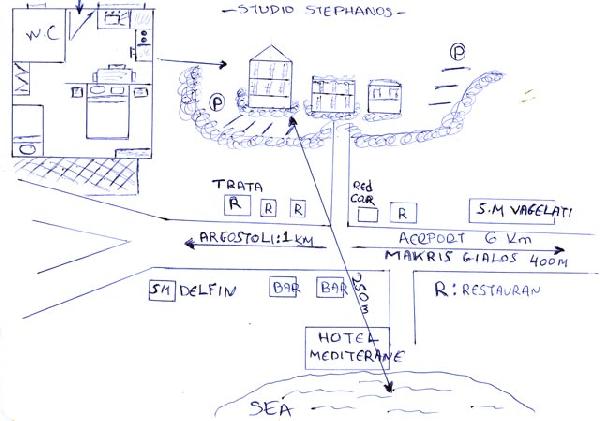 -STUDIO STEPHANOS-
W.C
P
P
TRATA
R
R
R
Red
CAR
R
S.M VAGELATI
ARGOSTOLI:1KM
AERPORT 6 Km
MAKRIS GIALOS 400m
SM DELFIN
BAR
BAR
250m
R:RESTAURAN
HOTEL
MEDITERANE
SEA